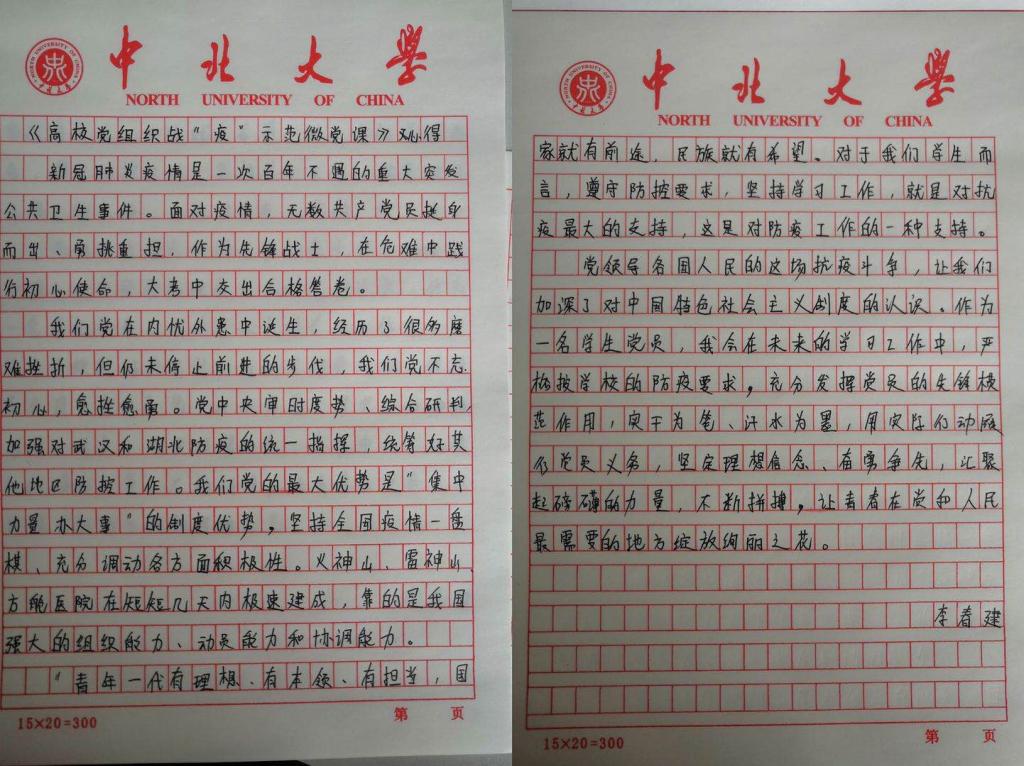 中北大学
NORTH UNIVERSITY OF CHINA
《高校党组织战“疫”示范微党课》观心得
新冠肺炎疫情是一次百年不遇的重大突发
公共卫生事件。面对疫情，无数共产党员挺身
而出、勇挑重担，作为先锋战士，在危难中践
行初心使命，大考中交出合格答卷。
我们党在内忧外患中诞生，经历了很多磨
难挫折，但仍未停止前进的步伐，我们党不忘
初心，愈挫愈勇。党中央审时度势、综合研判，
加强对武汉和湖北防疫的统一指挥，统筹好其
他地区防控工作。我们党的最大优势是“集中
力量办大事”的制度优势。坚持全国疫情一盘
棋、充分调动各方面积极性。火神山、雷神山、
方舱医院在短短几天内极速建成，靠的是我国
强大的组织能力、动员能力和协调能力。
“青年一代有理想、有本领、有担当，国
15×20=300
第 页
中北大学
NORTH UNIVERSITY OF CHINA
家就有前途，民族就有希望。对于我们学生而
言，遵守防控要求，坚持学习工作，就是对抗
疫最大的支持，这是对防疫工作的一种支持。
党领导各国人民的这场抗疫斗争，让我们
加深了对中国特色社会主义制度的认识。作为
一名学生党员，我会在未来的学习工作中，严
格按学校的防疫要求，充分发挥党员的先锋模
范作用，实干为笔、汗水为墨，用实际行动履
行党员义务，坚定理想信念、奋勇争先，汇聚
起磅礴的力量，不断拼搏，让青春在党和人民
最需要的地方绽放绚丽之花。
李春建
15×20=300
第 页